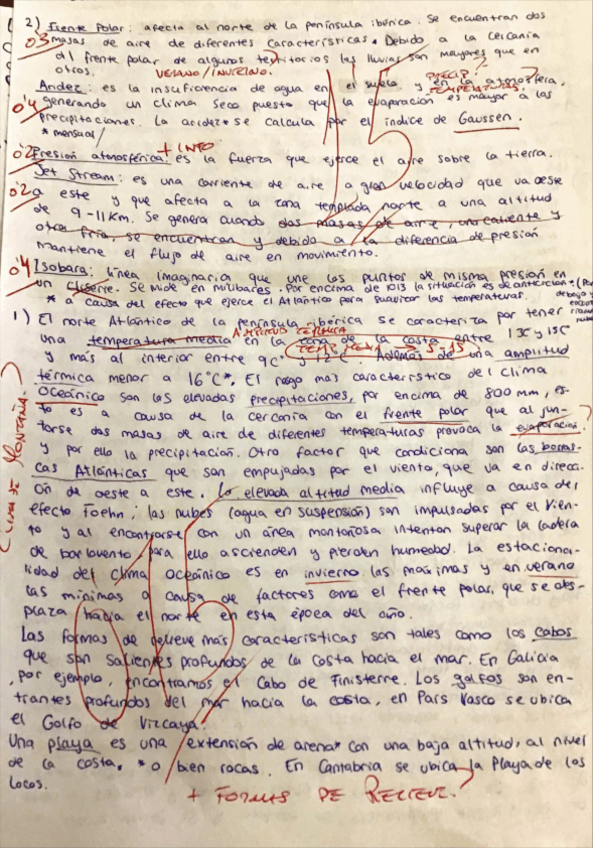 2) Frente Polar: afecta al norte de la península ibérica. Se encuentran dos
0'3 masas de aire de diferentes características. Debido a la cercanía
del frente polar de algunos territorios las lluvias son mayores que en
otros. VERANO/INVIERNO.
PRECIP. TEMPERATURAS.
Aridez: es la insuficiencia de agua en el suelo y en la atmósfera,
0'4 generando un clima seco puesto que la evaporación es mayor a las
precipitaciones. La aridez* se calcula por el índice de Gaussen.
* mensual/
+ INFO
0'2 Presión atmosférica: es la fuerza que ejerce el aire sobre la tierra.
Jet Stream: es una corriente de aire a gran velocidad que va oeste
0'2 a este y que afecta a la zona templada norte a una altitud
de 9-11 Km. Se genera cuando dos masas de aire, una caliente y
otra fría, se encuentran y debido a la diferencia de presión
mantiene el flujo de aire en movimiento.
0'4 Isobara: línea imaginaria que une los puntos de misma presión en
un cliserie. Se mide en milibares. Por encima de 1013 la situación es de anticiclón
* a causa del efecto que ejerce el Atlántico para suavizar las temperaturas.
1) El norte Atlántico de la península ibérica se caracteriza por tener
AMPLITUD TÉRMICA
una temperatura media en la zona de la costa entre 13ºC y 15ºC
TEMP. MEDIA
y más al interior entre 9ºC y 12ºC. Además de una amplitud
térmica menor a 16ºC*. El rasgo mas característico del clima
Oceánico son las elevadas precipitaciones, por encima de 800 mm, es-
to es a causa de la cercanía con el frente polar que al jun-
tarse dos masas de aire de diferentes temperaturas provoca la evaporación
y por ello la precipitación. Otro factor que condiciona son las borras-
cas Atlánticas que son empujadas por el viento, que va en direcci-
ón de oeste a este. La elevada altitud media influye a causa del
efecto Foehn; las nubes (agua en suspensión) son impulsadas por el vien-
to y al encontrarse con un área montañosa intentan superar la ladera
de barlovento para ello ascienden y pierden humedad. La estaciona-
lidad del clima Oceánico es en invierno las máximas y en verano
las mínimas a causa de factores como el frente polar, que se des-
plaza hacia el norte en esta época del año.
CLIMA DE MONTAÑA?
Las formas de relieve más características son tales como los cabos
que son salientes profundos de la costa hacia el mar. En Galicia
, por ejemplo, encontramos el Cabo de Finisterre. Los golfos son en-
trantes profundos del mar hacia la costa, en País Vasco se ubica
el Golfo de Vizcaya.
Una playa es una extensión de arena* con una baja altitud, al nivel
de la costa. * o bien rocas. En Cantabria se ubica la Playa de los
Locos.
+ FORMAS DE RELIEVE?